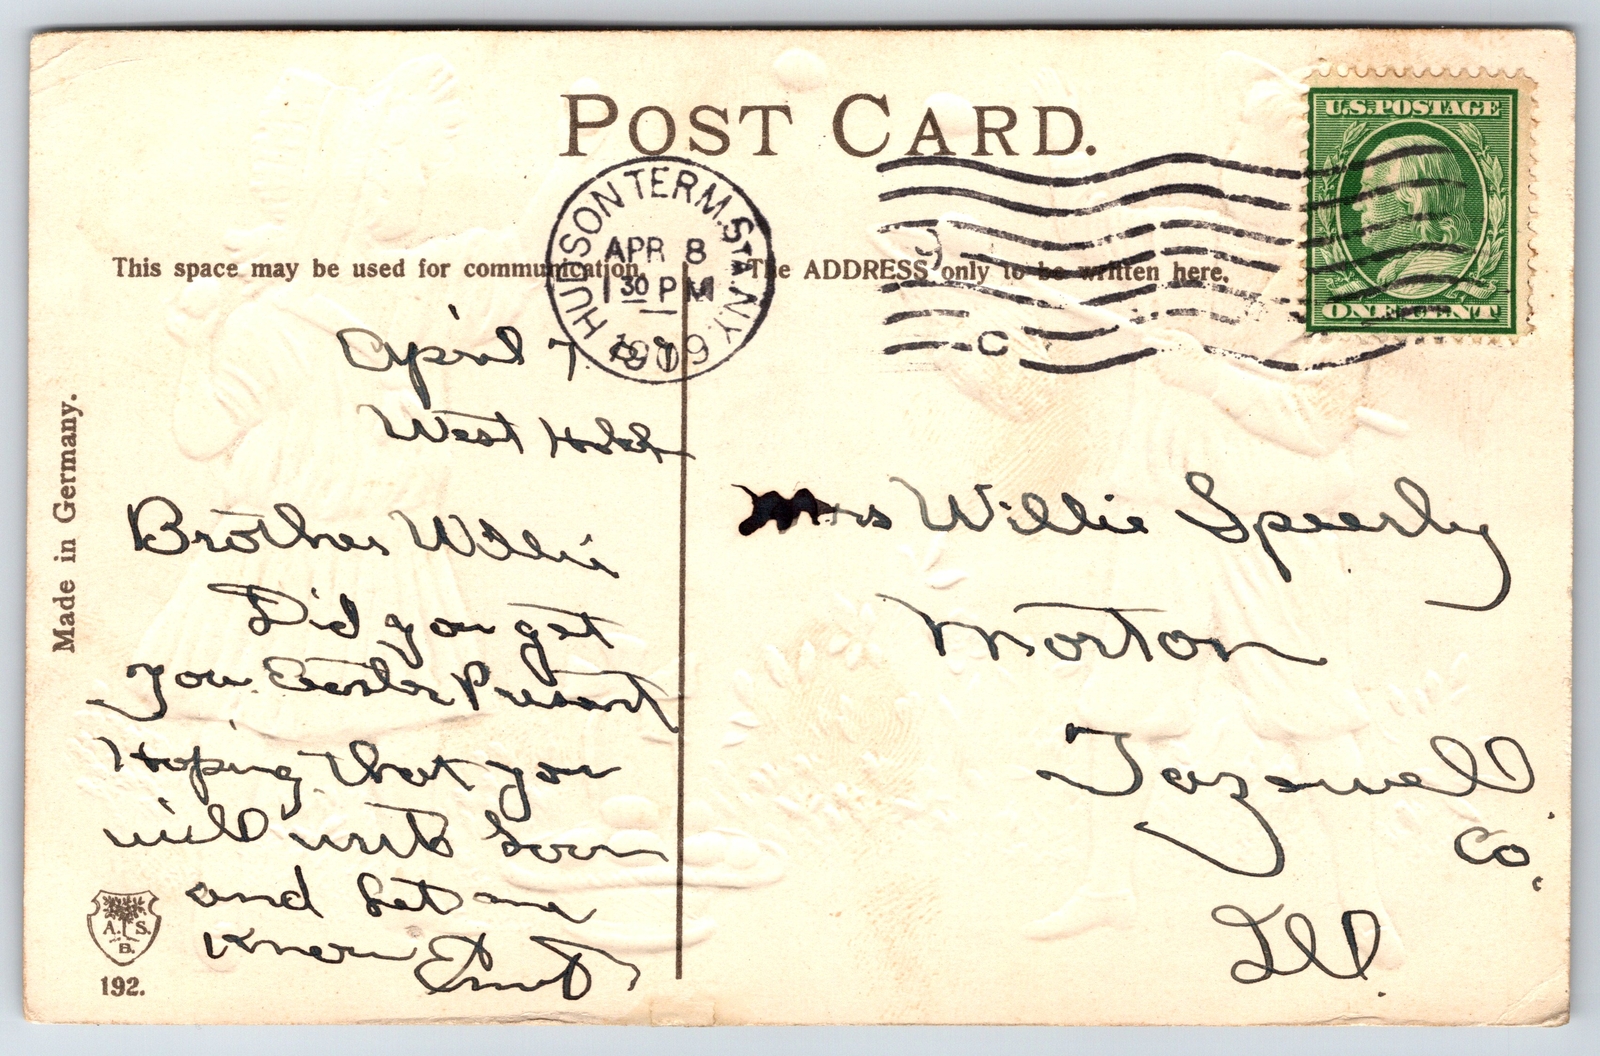 POST CARD.
U.S. POSTAGE
ONE CENT
HUDSON TERM. STA. N.Y.
APR 8
1 30 P M
1909
C
This space may be used for communication.
The ADDRESS only to be written here.
April 7
West Hobk
Brother Willie
Did you get
you Easter Present
Hoping that you
will write Soon
and Let me
know
Mrs Willie Speerly
Morton
Tazewell
Co.
Ill.
Made in Germany.
A. S.
B.
192.